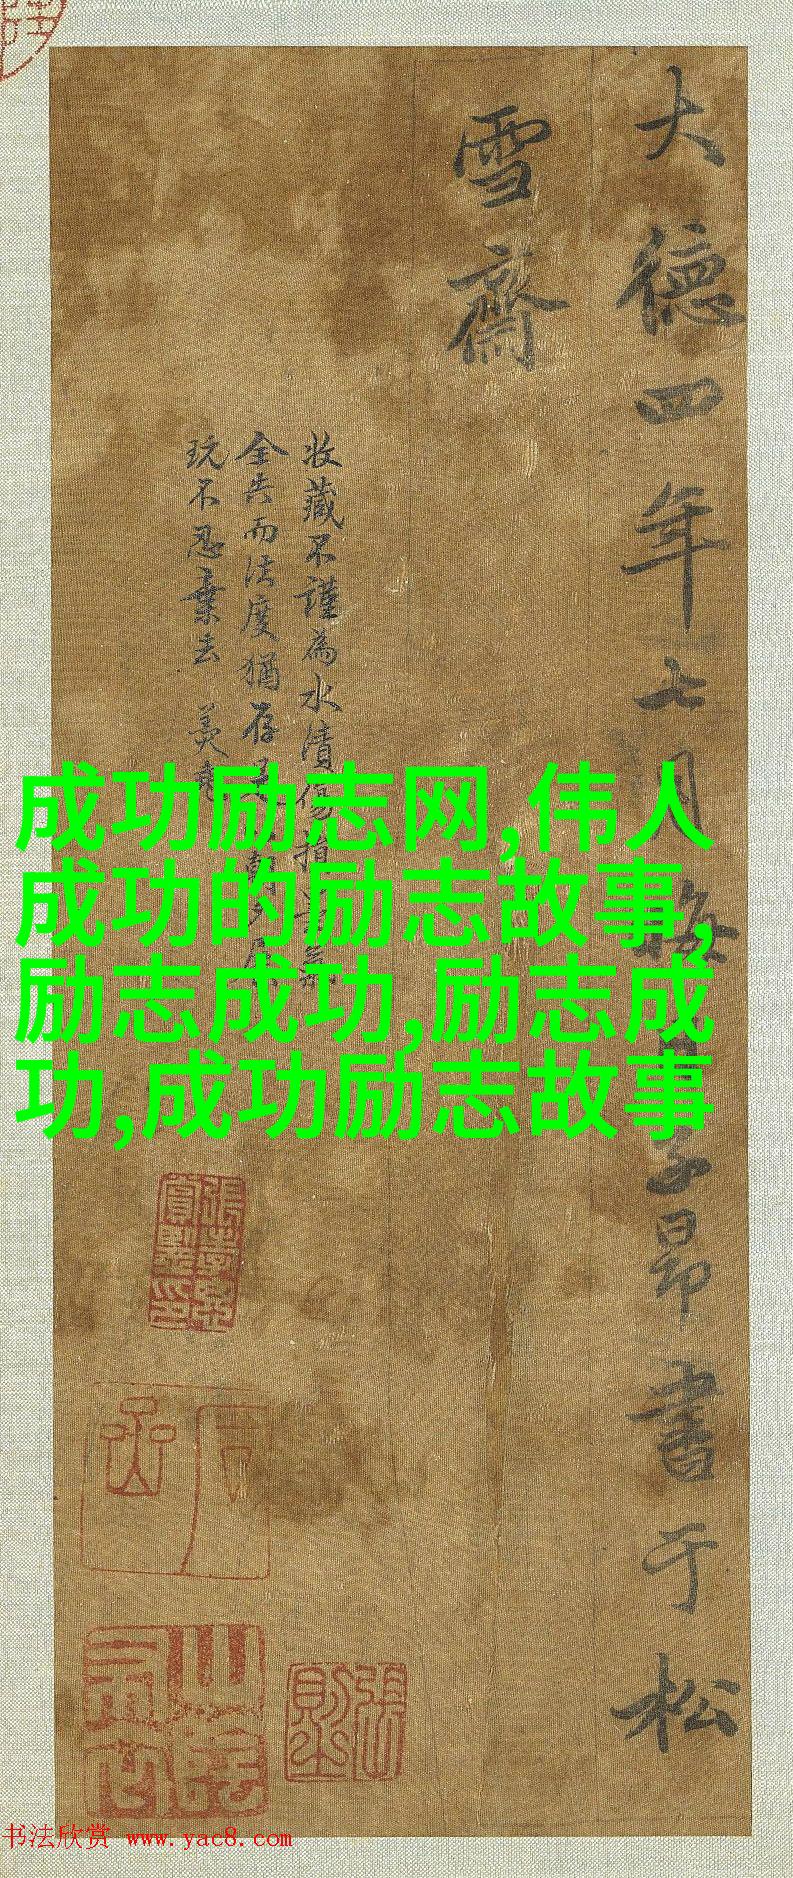 大德四年七月
子昂書于松
雪齋
收藏不謹為水漬傷
全失而法度猶存
玩不忍棄去
成功励志网,伟人
成功的励志故事,
励志成功,励志成
功,成功励志故事
书法欣赏 www.yac8.com